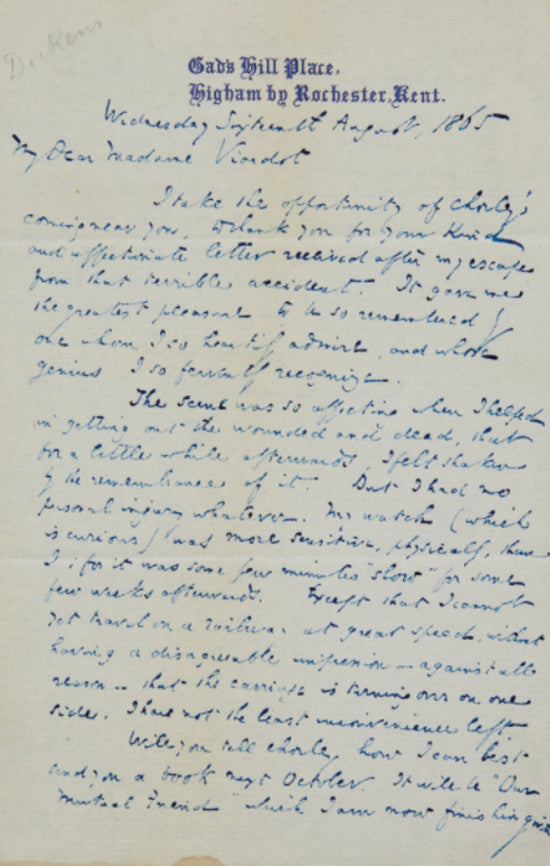 Dickens
Gad's Hill Place,
Higham by Rochester, Kent.
Wednesday Sixteenth August, 1865
My Dear Madame Viardot
I take the opportunity of Chorley's
coming near you, to thank you for your kind
and affectionate letter received after my escape
from that terrible accident. It gave me
the greatest pleasure to be so remembered by
one whom I so heartily admire, and whose
genius I so fervently recognize.
The scene was so affecting when I helped
in getting out the wounded and dead, that
for a little while afterwards, I felt shaken
by the remembrance of it. But I had no
personal injury whatever. My watch (which
is curious) was more sensitive, physically, than
I; for it was some few minutes "slow" for some
few weeks afterwards. Except that I cannot
yet travel on a railway at great speed, without
having a disagreeable impression – against all
reason – that the carriage is turning over on one
side, I have not the least inconvenience left.
Will you tell Chorley how I can best
send you a book next October. It will be "Our
Mutual Friend" which I am now finishing